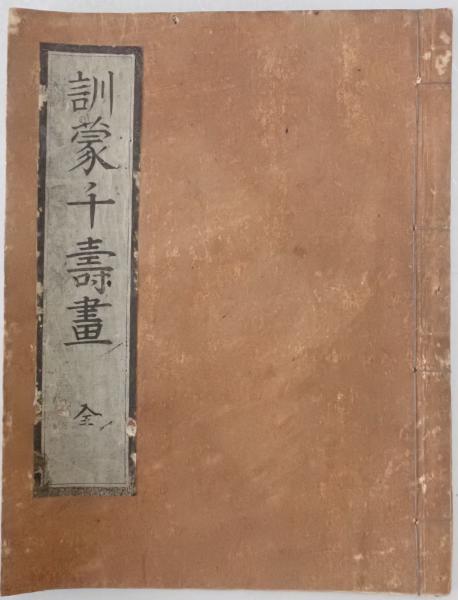 訓蒙千壽畫 全